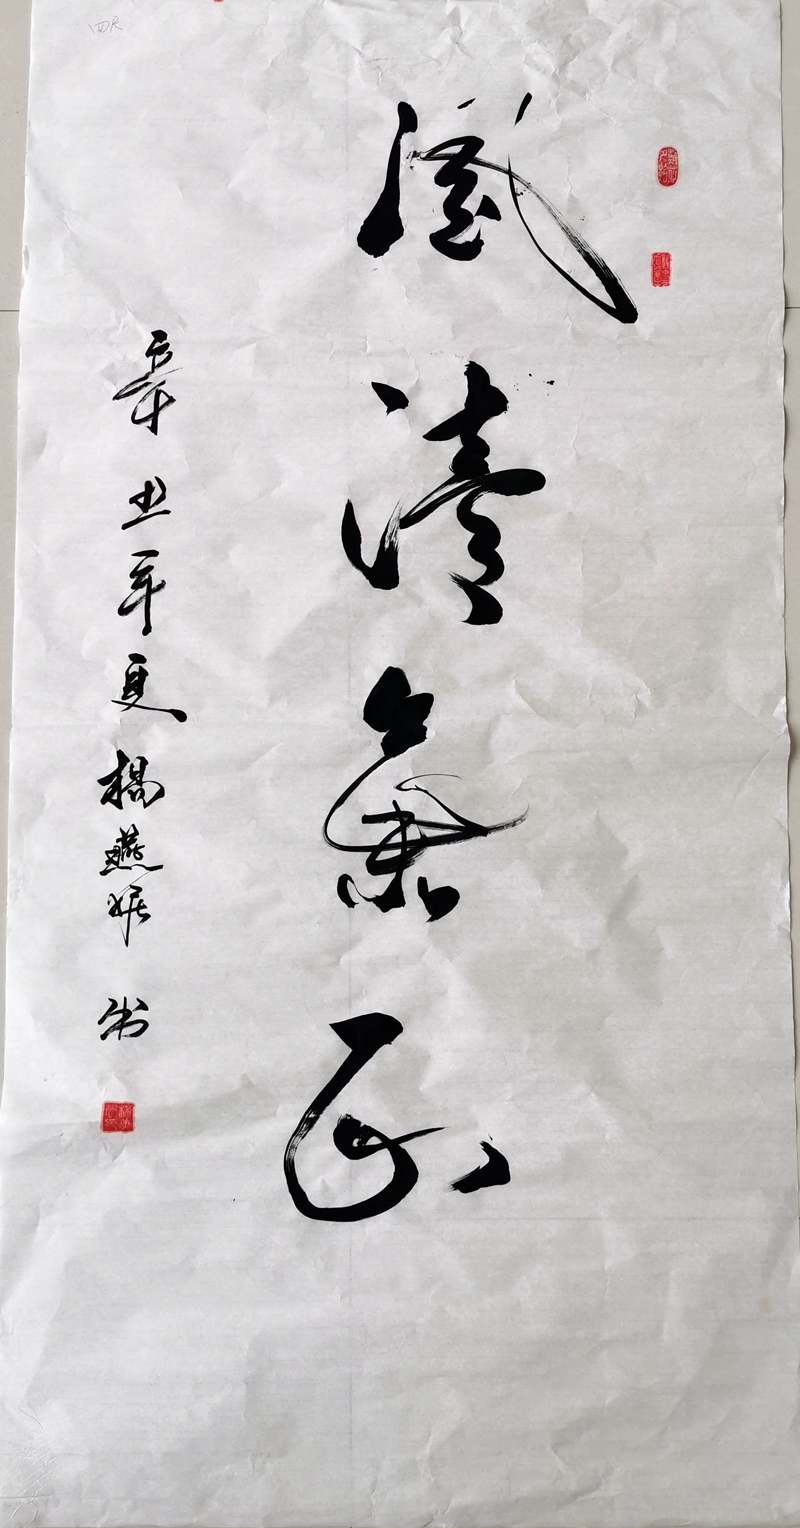 風清氣正
辛丑年夏楊燕 书
四尺